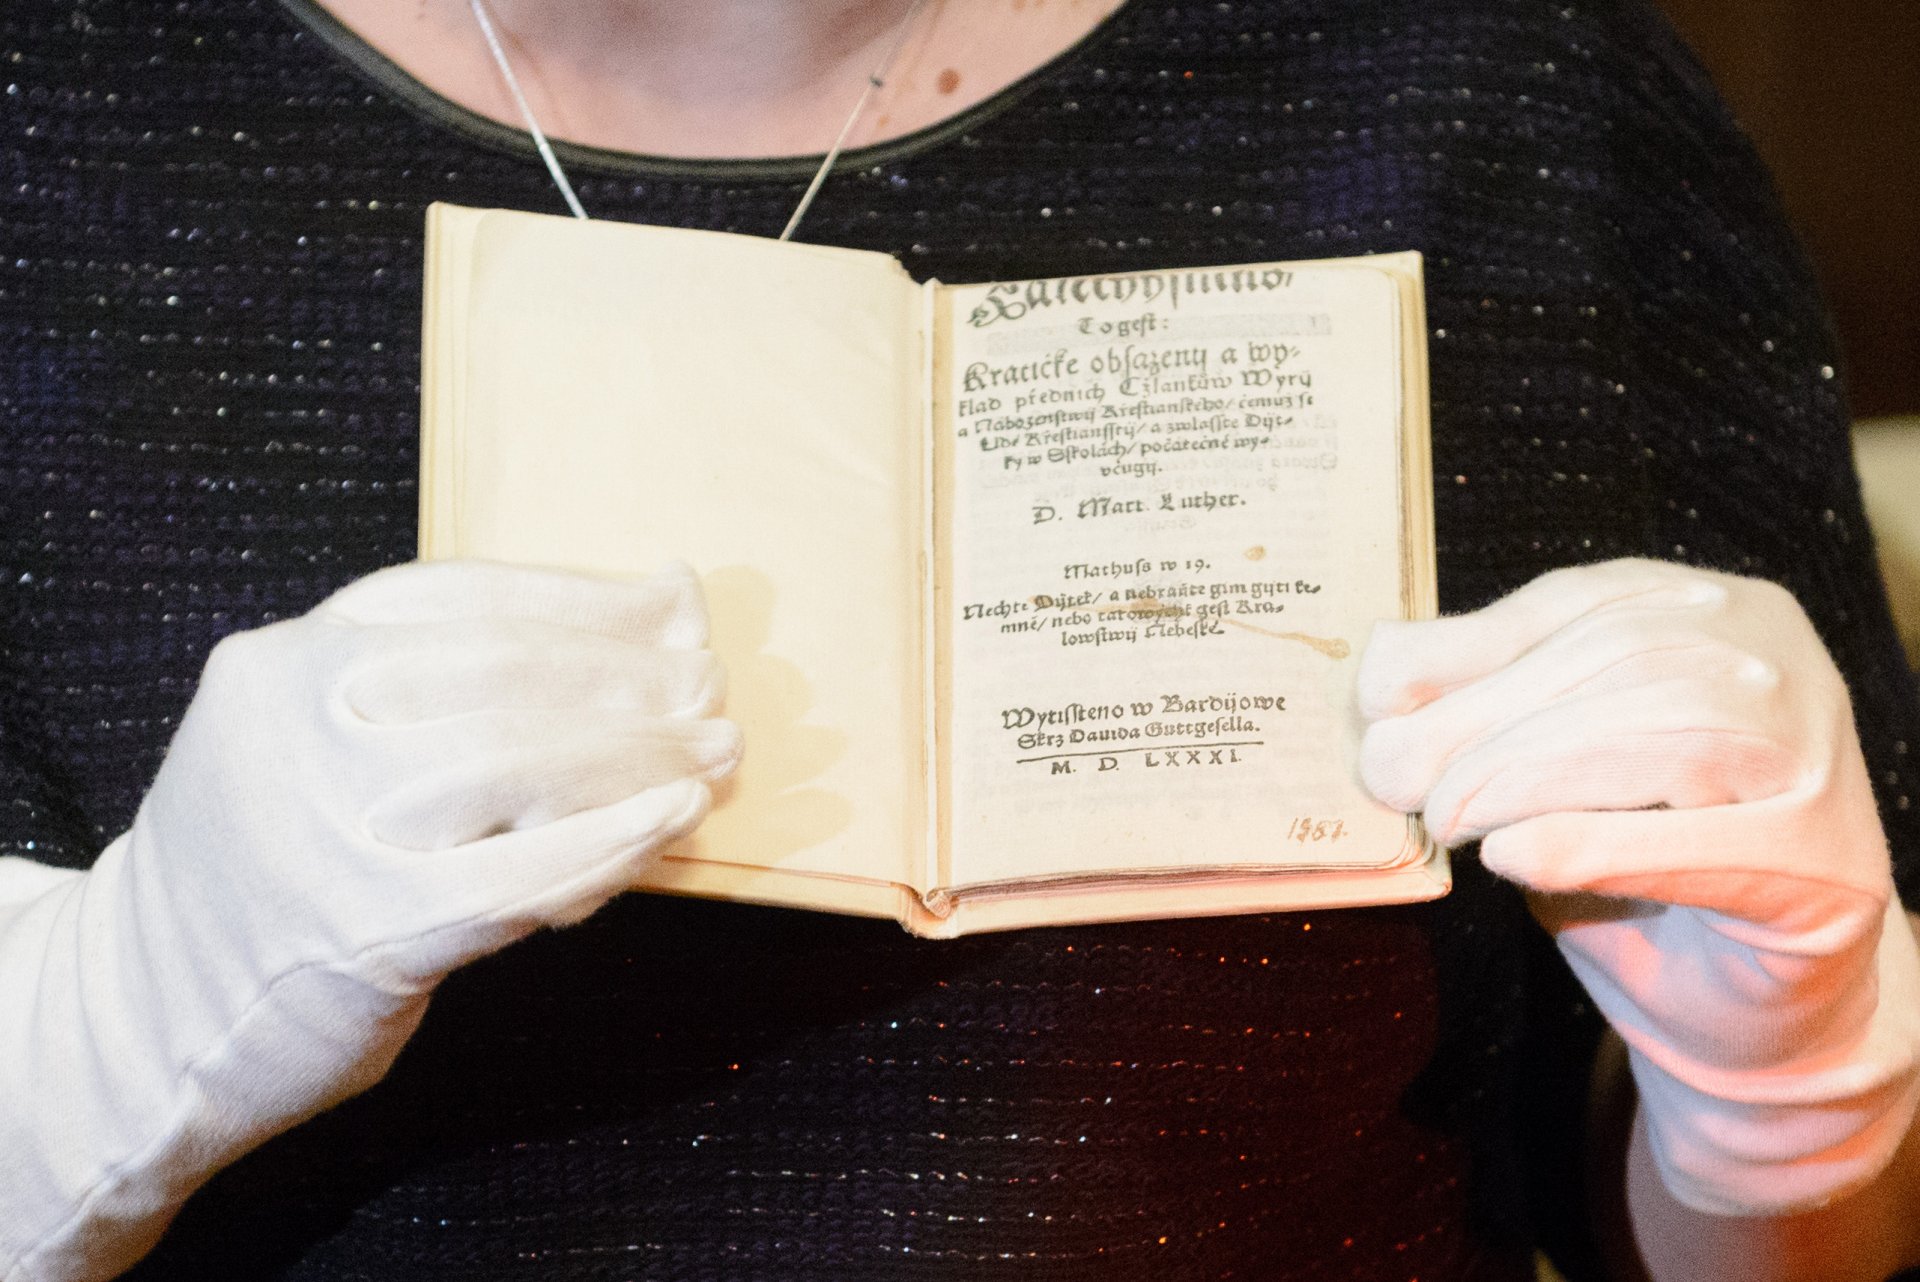 Katechysmus/
To gest:
Kratičke obsaženij a wy-
klad předních Čzlankůw Wyry
a Náboženstwij Křestianského/ čemuž se
Lidé Křestiansstij/ a zwlasste Dijt-
ky w Sskolách/ počátečně wy-
včugij.
D. Mart. Luther.
Mathuss w 19.
Nechte Dijtek/ a nebraňte gim gijti ke-
mně/ nebo takowých gest Kra-
lowstwij Nebeské.
Wytisstěno w Bardijowe
Skrz Dauida Guttgesella.
M. D. LXXXI.
1581.